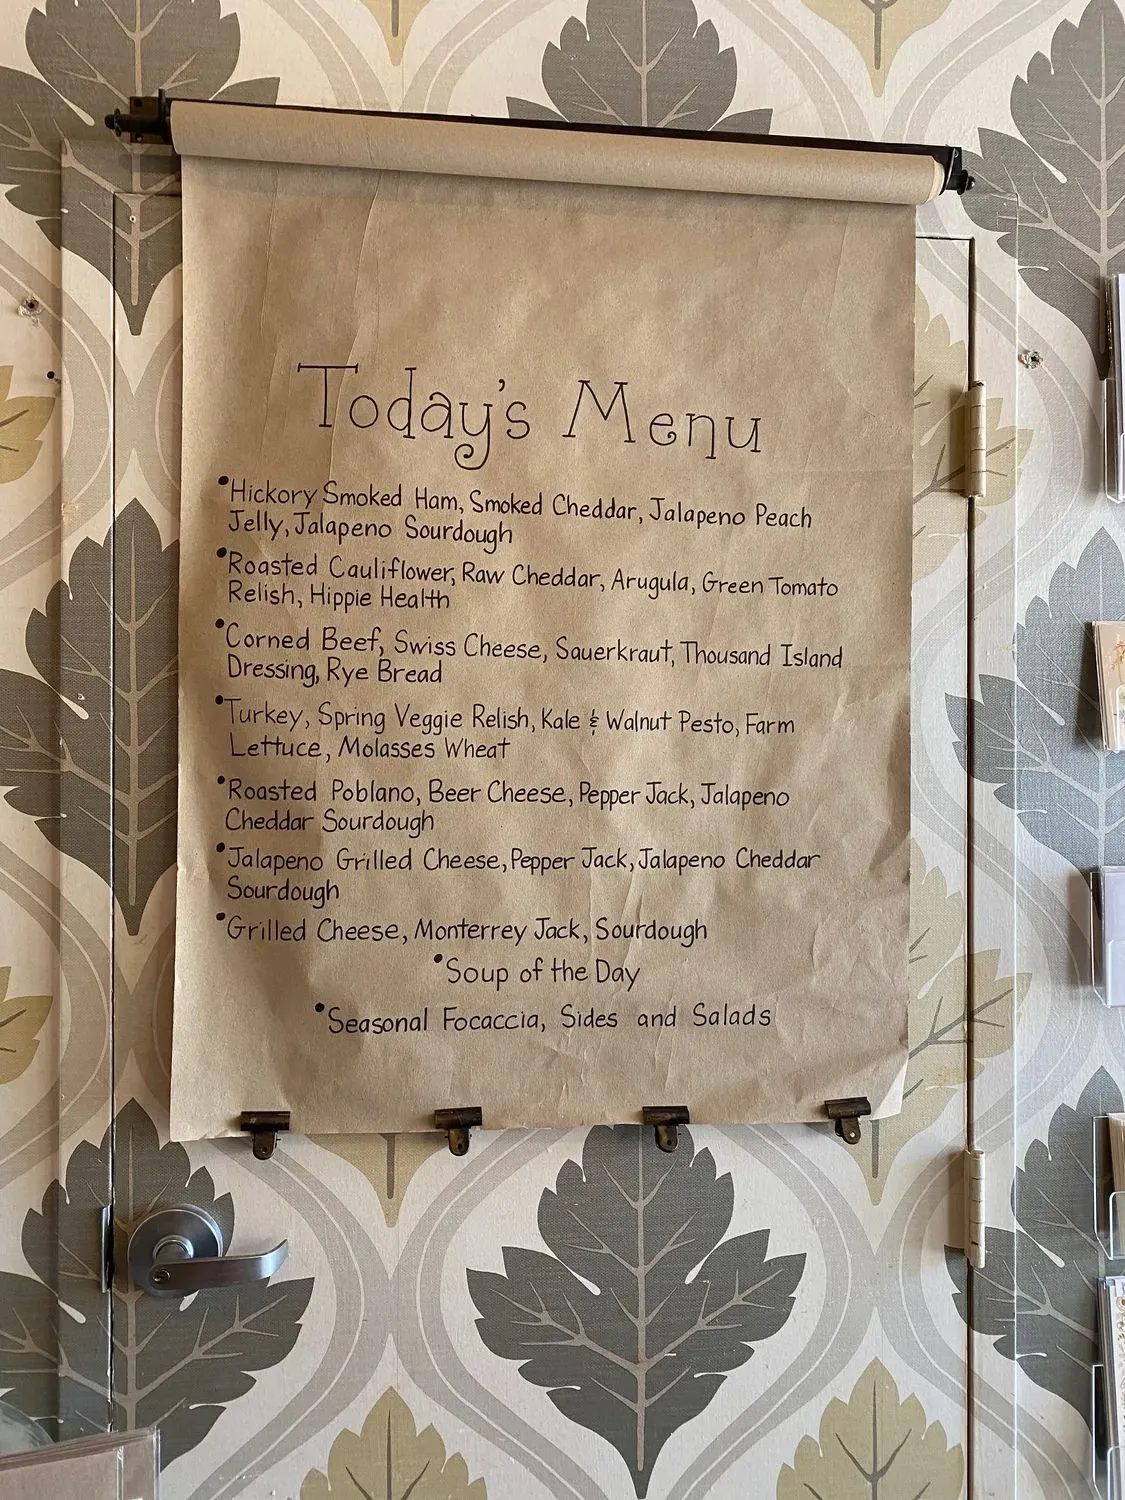 Today's Menu
•Hickory Smoked Ham, Smoked Cheddar, Jalapeno Peach
Jelly, Jalapeno Sourdough
•Roasted Cauliflower, Raw Cheddar, Arugula, Green Tomato
Relish, Hippie Health
•Corned Beef, Swiss Cheese, Sauerkraut, Thousand Island
Dressing, Rye Bread
•Turkey, Spring Veggie Relish, Kale & Walnut Pesto, Farm
Lettuce, Molasses Wheat
•Roasted Poblano, Beer Cheese, Pepper Jack, Jalapeno
Cheddar Sourdough
•Jalapeno Grilled Cheese, Pepper Jack, Jalapeno Cheddar
Sourdough
•Grilled Cheese, Monterrey Jack, Sourdough
•Soup of the Day
•Seasonal Focaccia, Sides and Salads